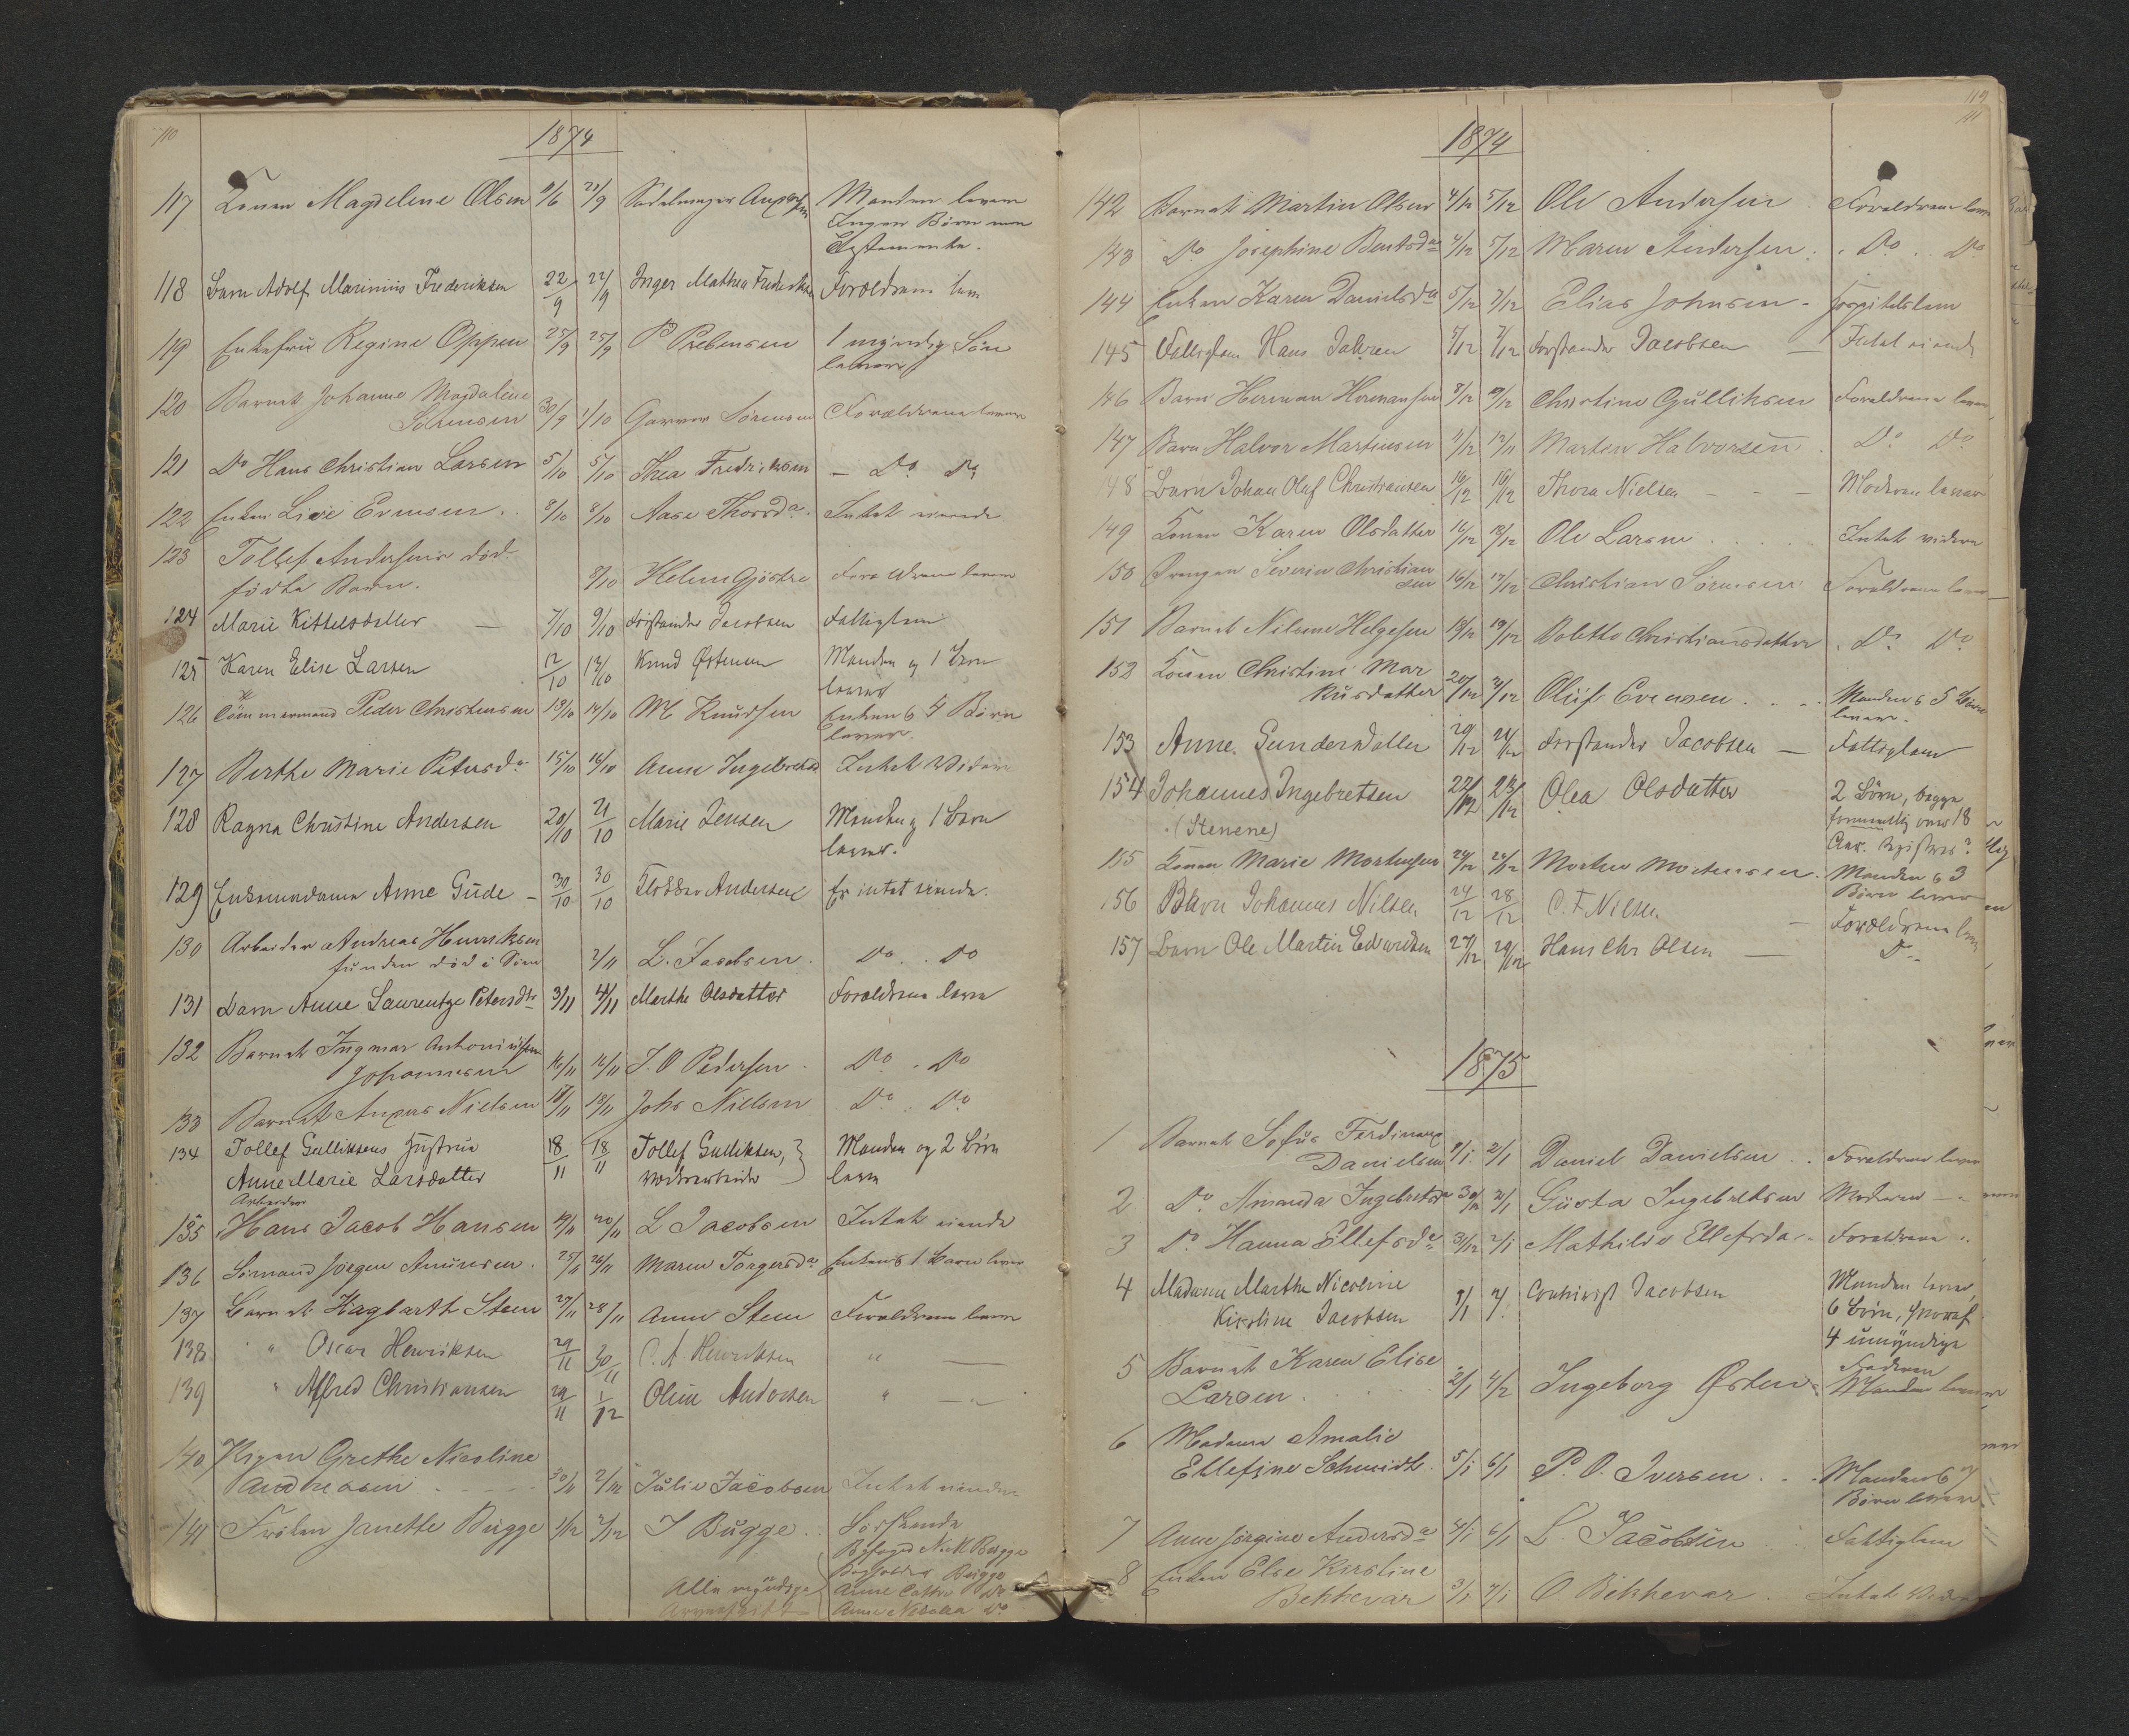 110
1874
117 Konen Magdelene Olsen 9/6 21/9 Sadelmager Manden lever
Ingen Børn men
Testamente.
118 Barn Adolf Marinius Frederiksen 22/9 22/9 Inger Mathea Foreldrene leve
119 Enkefru Regine Oppen 25/9 25/9 P Prebensen 1 myndig Søn
lever
120 Barnet Johanne Magdalene
Sørensen 30/9 1/10 Garver Sörensen Forældrene lever
121 Do Hans Christian Larsen 5/10 5/10 Thea Fredriksen – Do Do
122 Enken Evensen . . 8/10 8/10 Aase Thorsda. Intet eiende
123 Tollef Andersens død-
födte Barn. 8/10 Helene Gjöstre Foreldrene lever
124 Marie Kittelsdatter — 7/10 9/10 Forstander Jacobsen Fattiglem
125 Karen Elise Larsen 12/10 12/10 Knud Østensen Manden og 1 Barn
lever
126 Tömmermand Peder Christensen 13/10 14/10 M Knudsen Enken & 4 Børn
lever.
127 Berthe Marie Petersda 15/10 16/10 Anne Intet Videre
128 Ragna Christine Andersen 20/10 21/10 Marie Jensen Manden og 1 Barn
lever.
129 Enkemadame Anne Gude – 30/10 30/10 Andersen Er intet eiende.
130 Arbeider Andreas Henriksen
funden död i Söen 2/11 L. Jacobsen. Do. . Do
131 Barn Anne Laurentze Petersdtr 3/11 4/11 Marthe Olsdatter Foreldrene leve
132 Barnet Ingmar
Johannesen 10/11 12/11 J. O Pedersen . Do . Do
133 Barnet Anders Nielsen 18/11 18/11 Johs Nielsen Do . . Do
134 Tollef Gulliksens Hustru 18/11 18/11 Tollef Gulliksen, } Manden og 2 Børn
Anne Marie Larsdatter leve
Arbeider
135 Hans Jacob Hansen 19/11 20/11 L Jacobsen Intet eiende
136 Sömand Jörgen Amundsen . 25/11 26/11 Maren Torgersda Enken & 1 Barn lever
137 Barnet Hagbarth Steen 27/11 28/11 Anne Steen Foreldrene lever
138 " Oscar Henriksen 29/11 30/11 C. A. Henriksen " —
139 " Alfred Christiansen 29/11 1/12 Oline Andersen " —
140 Pigen Grethe Nicoline
Andreasen . . . . 30/11 2/12 Julie Jacobsen Intet eiende
141 Frøken Janette Bugge 1/12 2/12 J Bugge . . Söskende
Byfoged N. M Bugge
Bugge
Alle myndige Anne Do
Anne Do
119
111
1874
142 Barnet Martin Olsen 4/12 5/12 Ole Andersen . Foreldrene leve
143 Do Josephine Bentsda 4/12 5/12 Maren Andersen . . Do . . Do
144 Enken Karen Danielsda 5/12 7/12 Elias Johnsen – Hospitalslem
145 Fattiglem Hans Jahren 5/12 7/12 Forstander Jacobsen — Intet eiende
146 Barn Herman Hermansen 8/12 10/12 Christine Gulliksen Foreldrene lever
147 Barn Halvor Martinsen 11/12 12/11 Marten Halvorsen . Do Do
148 Barn Johan Oluf Christiansen 16/12 16/12 Thora Nielsen – – – Moderen lever
149 Konen Karen Olsdatter 16/12 18/12 Ole Larsen . . . . Intet videre
150 Drengen Severin Christian
sen 16/12 17/12 Christian Sörensen Foreldrene lever
151 Barnet Nilsine Helgesen 18/12 19/12 Bolette Christiansdatter . Do Do
152 Konen Christine Mar
kusdatter 20/12 21/12 Oluf Evensen . . . Manden & 5 Børn
lever.
153 Anne Gundersdatter 20/12 21/12 Forstander Jacobsen — Fattiglem
154 Johannes Ingebretsen 22/12 23/12 Olea Olsdatter 2 Børn, begge
(Stenene) over 18
Aar.
155 Konen Marie Mortensen 24/12 24/12 Morten Mortensen . Manden & 3
Børn lever
156 Barn Johannes Nilsen 24/12 28/12 C. F. Nilsen — Forældrene leve
157 Barn Ole Martin Edvardsen 27/12 29/12 Hans Chr Olsen — Do
1875
1 Barnet Sofus Ferdinand
Danielsen 1/1 2/1 Daniel Danielsen . . Foreldrene lever
2 Do Amanda Ingebretsda 30/12 2/1 Gusta Ingebretsen Moderen – "
3 Do Hanna Ellefsda 31/12 2/1 Mathilde Ellefsda . Foreldrene "
4 Madame Marthe Nicoline Manden lever,
Kirstine Jacobsen 1/1 2/1 Jacobsen 6 Børn, hvoraf
4 umyndige
5 Barnet Karen Elise Faderen
Larsen . . . . 2/1 4/2 Ingeborg Østen Manden lever
6 Madame Amalie
Ellefine Schmidt . 5/1 6/1 P. O. Iversen . . . Manden & 7
Børn lever
7 Anne Jörgine Andersda 4/1 6/1 L. Jacobsen Fattiglem
8 Enken Else Kirstine
Bekkevar 3/1 7/1 O. Bekkevar . Intet